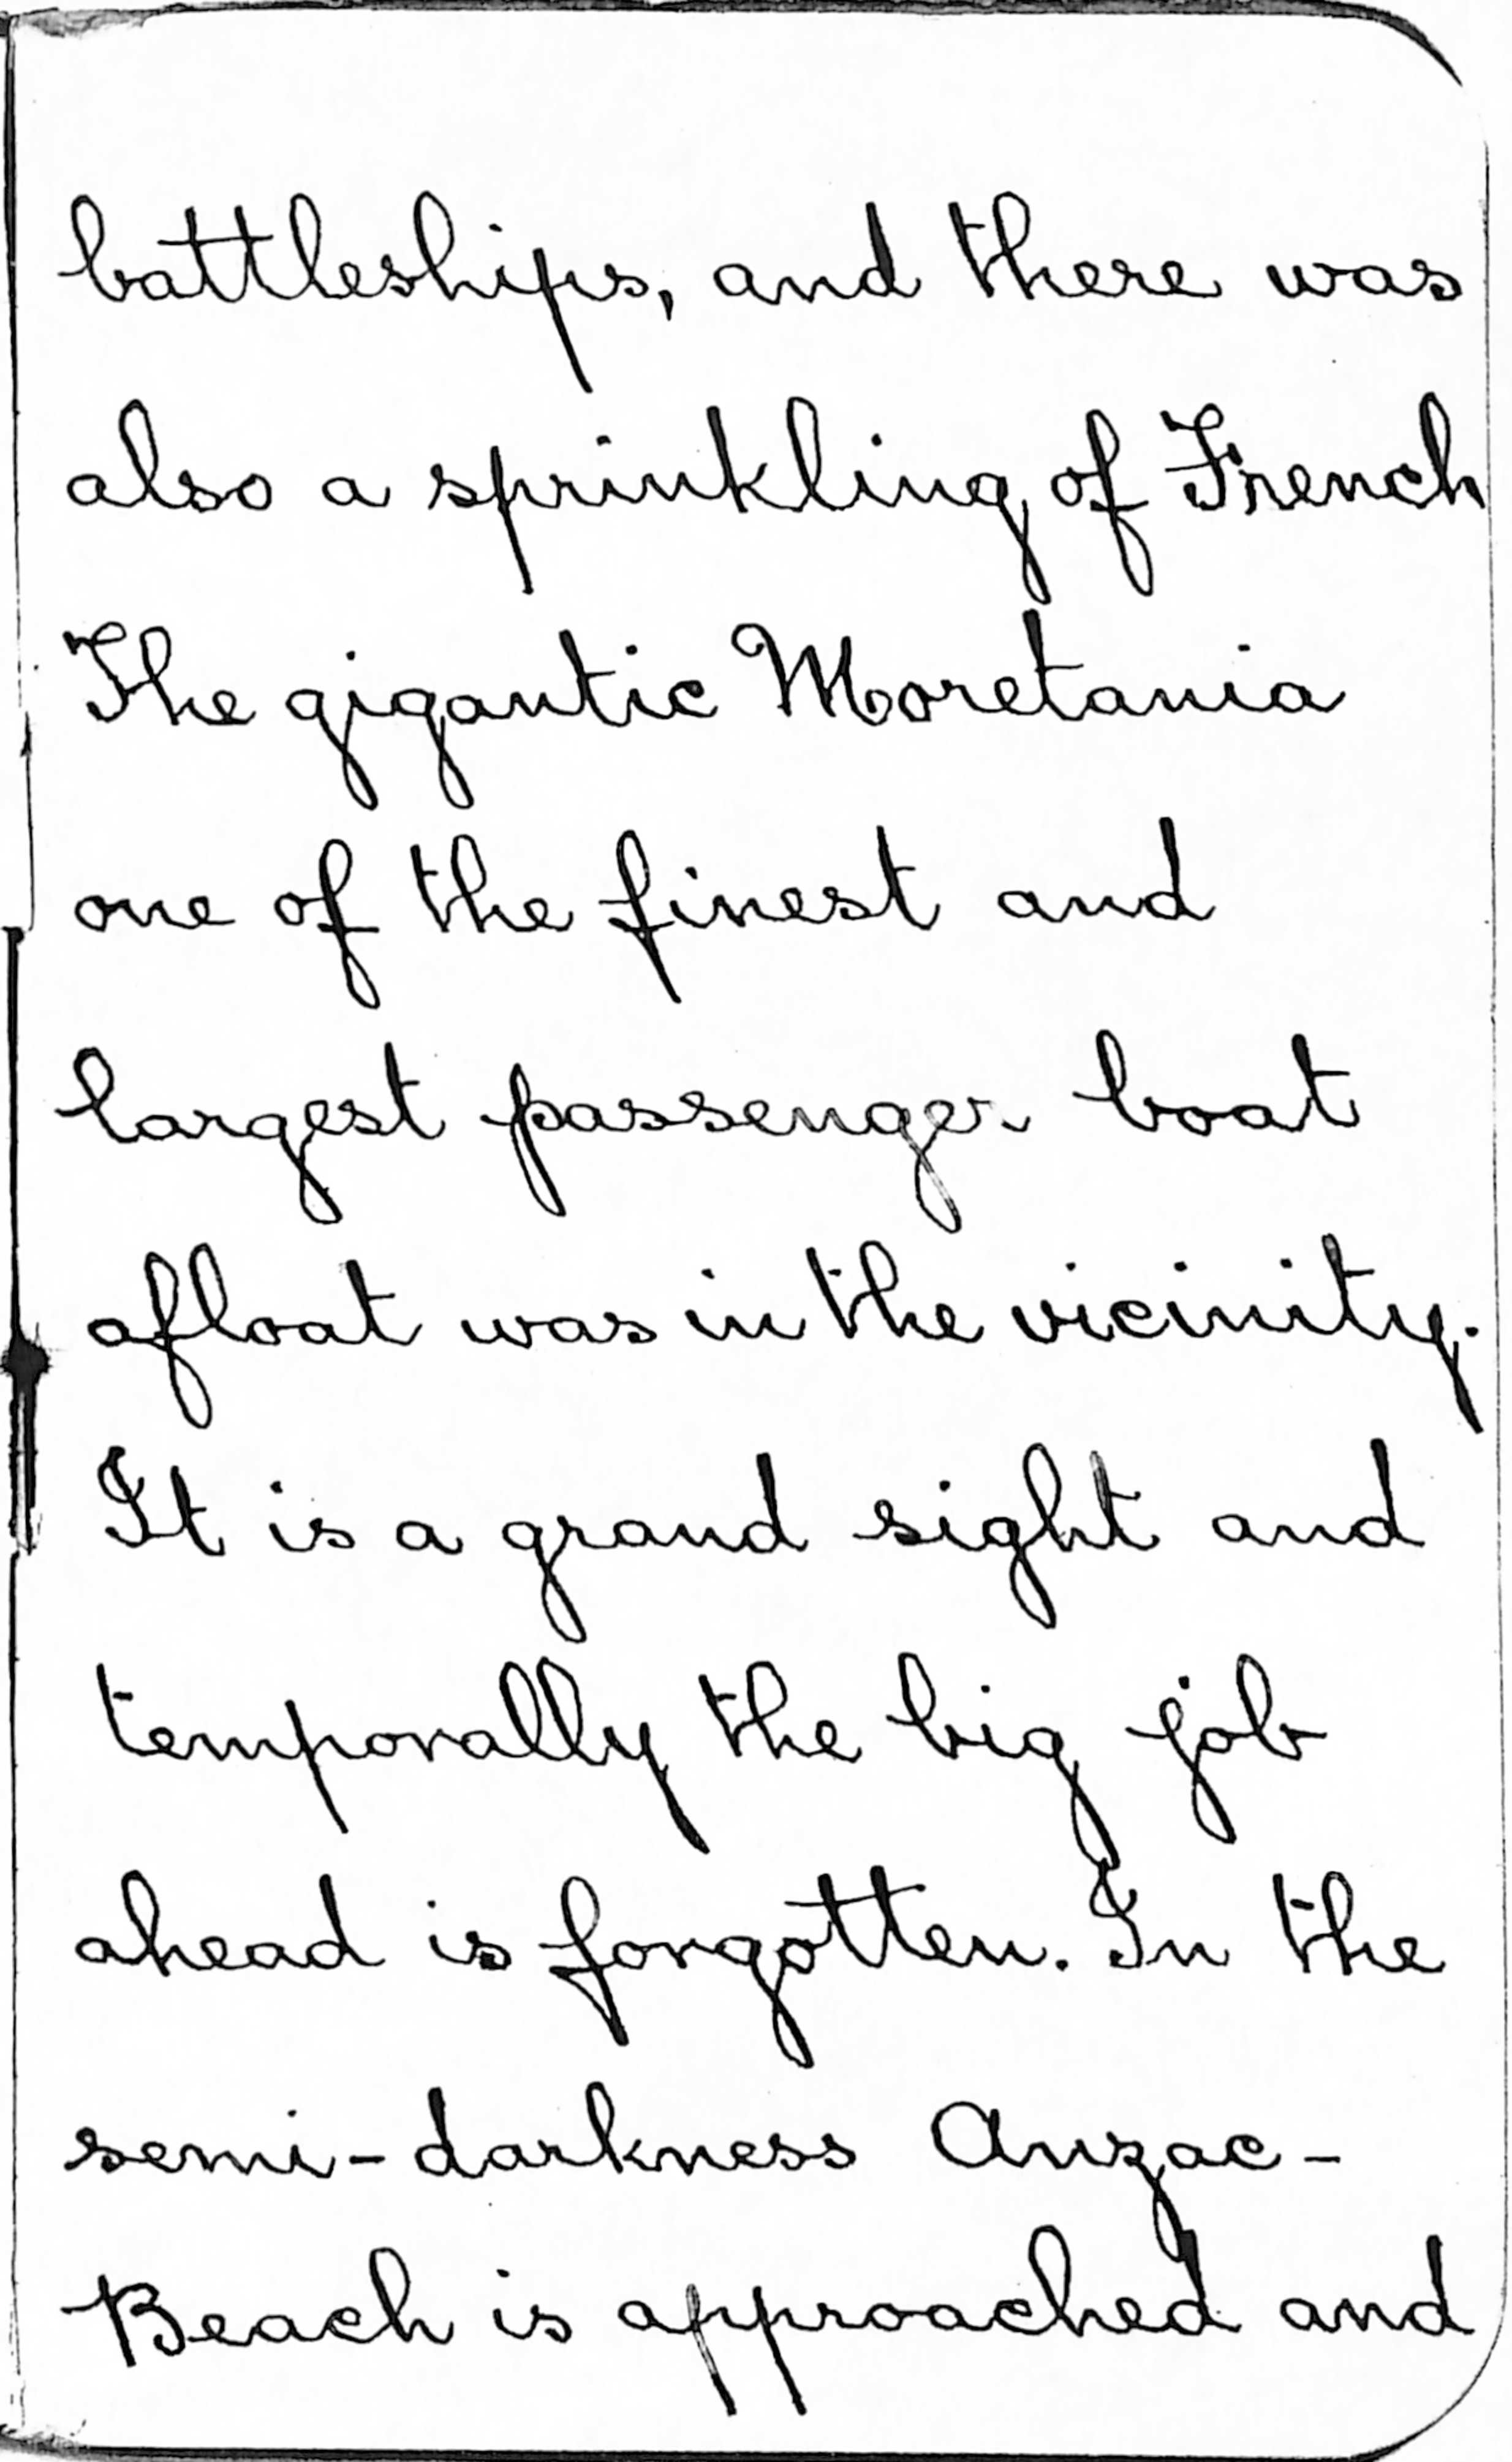 battleships, and there was
also a sprinkling of French
The gigantic Moretania
one of the finest and
largest passenger boat
afloat was in the vicinity.
It is a grand sight and
temporally the big job
ahead is forgotten. In the
semi-darkness Anzac-
Beach is approached and